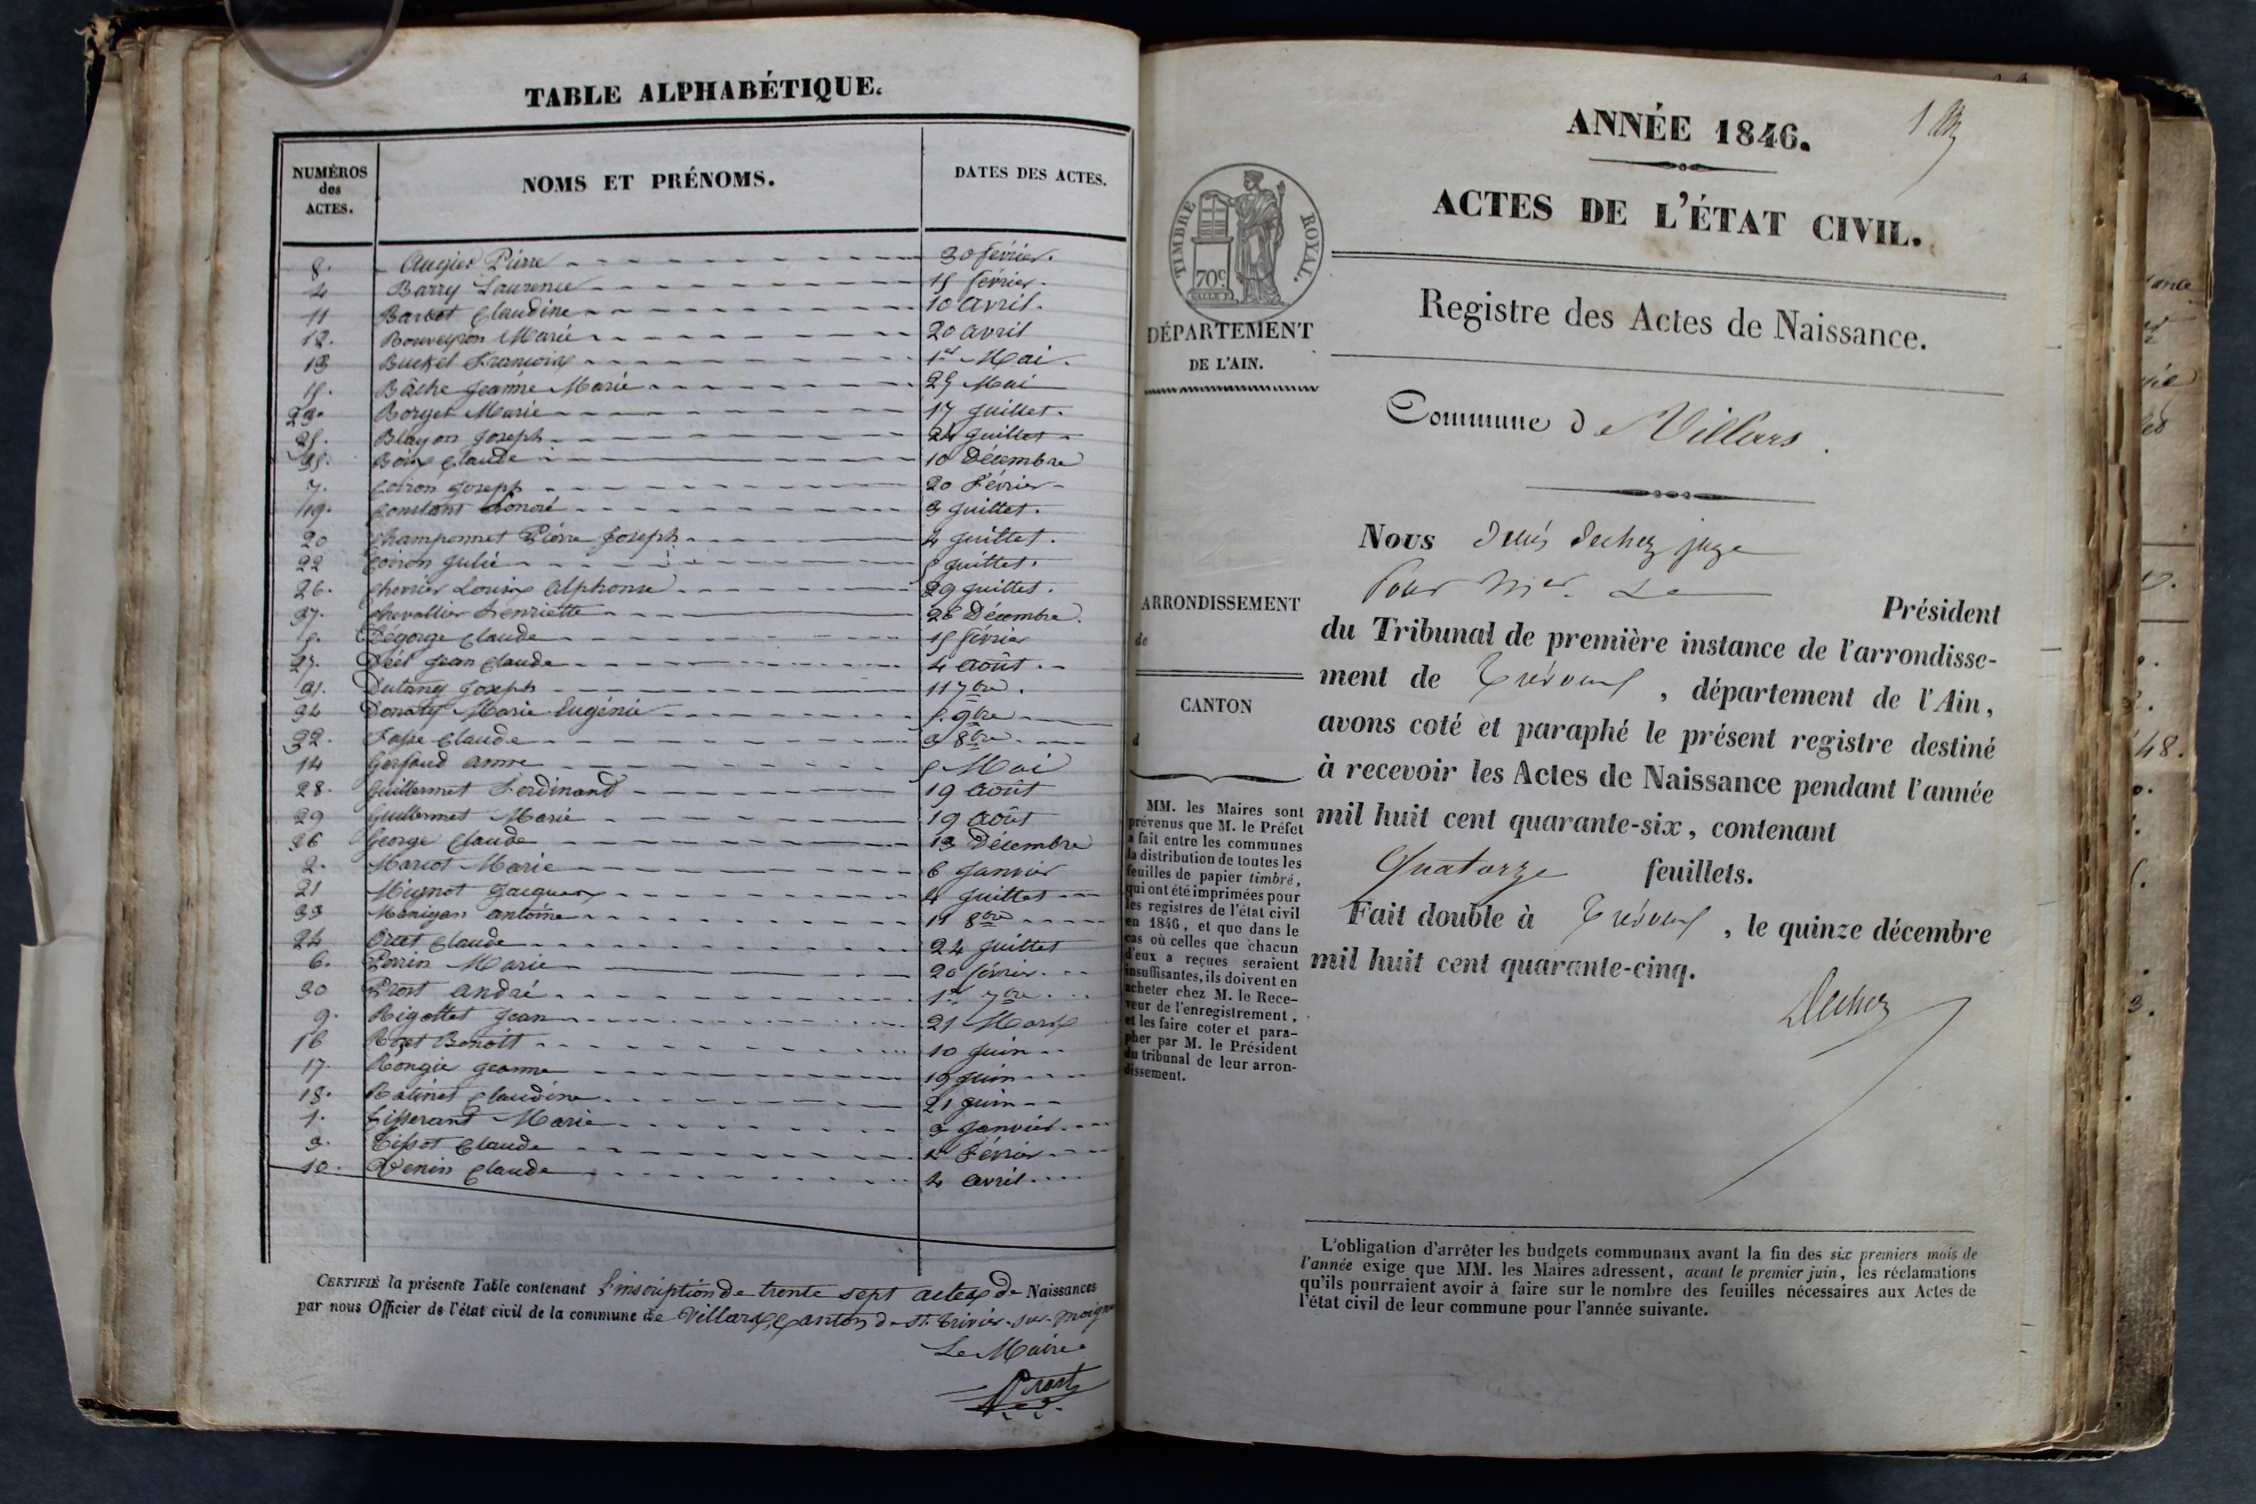 TABLE ALPHABÉTIQUE.
NUMÉROS des ACTES.
NOMS ET PRÉNOMS.
DATES DES ACTES.
8. Augier Pierre 30 février.
4 Barry Laurence 15 février.
11 Barbet Claudine 10 avril.
12. Bouveyron Marie 20 avril
13 Buekel François 1er Mai.
15. Bâche Jeanne Marie 25 Mai
23. Borget Marie 17 Juillet.
25. Blayon Joseph 24 Juillet
35. Claude 10 Décembre
7. Coiron Joseph 20 Février
19. Constant Honoré 3 Juillet.
20 Champonnet Pierre Joseph 4 Juillet.
22 Coiron Julie Juillet.
26. Louis Alphonse 29 Juillet.
37. Chevallier Henriette 26 Décembre.
5. Dégorge Claude 15 février
27. Jean Claude 4 août.
31. Dutang Joseph 11 7bre.
34 Donaty Marie Eugénie 5. 9bre
32. Claude 2 8bre.
14 Gerfaud anne 5 Mai
28. Guillermet Ferdinand 19 août
29 Guillermet Marie 19 août
36 George Claude 13 Décembre
2. Marcot Marie 6 Janvier
21 Mignot Jacques 4 Juillet
33 antoine 11 8bre
24 Claude 24 Juillet
6. Perrin Marie 20 février.
30 Prost andré 1er 7bre
9. Rigottet Jean 21 Mars
16 Benoît 10 Juin
17. Rongie Jeanne 19 Juin
18. Ratinet Claudine 21 Juin
1. Tisserant Marie 3 Janvier
3. Tissot Claude Février
10. Venin Claude 4 avril
CERTIFIÉ la présente Table contenant l'inscription de trente sept actes de Naissances
par nous Officier de l'état civil de la commune de Villars, Canton de St. Trivier-sur-Moign
Le Maire
Prost
ANNÉE 1846.
ACTES DE L'ÉTAT CIVIL.
TIMBRE ROYAL.
70c
Registre des Actes de Naissance.
DÉPARTEMENT
DE L'AIN.
Commune de Villars.
Nous Denis Dechez juge
Pour Mr. Le
Président
ARRONDISSEMENT
de
du Tribunal de première instance de l'arrondisse-
ment de Trévoux, département de l'Ain,
CANTON
d
avons coté et paraphé le présent registre destiné
à recevoir les Actes de Naissance pendant l'année
mil huit cent quarante-six, contenant
Quatorze feuillets.
Fait double à Trévoux, le quinze décembre
mil huit cent quarante-cinq.
Dechez
MM. les Maires sont
prévenus que M. le Préfet
a fait entre les communes
la distribution de toutes les
feuilles de papier timbré,
qui ont été imprimées pour
les registres de l'état civil
en 1846, et que dans le
cas où celles que chacun
d'eux a reçues seraient
insuffisantes, ils doivent en
acheter chez M. le Rece-
veur de l'enregistrement,
et les faire coter et para-
pher par M. le Président
du tribunal de leur arron-
dissement.
L'obligation d'arrêter les budgets communaux avant la fin des six premiers mois de
l'année exige que MM. les Maires adressent, avant le premier juin, les réclamations
qu'ils pourraient avoir à faire sur le nombre des feuilles nécessaires aux Actes de
l'état civil de leur commune pour l'année suivante.